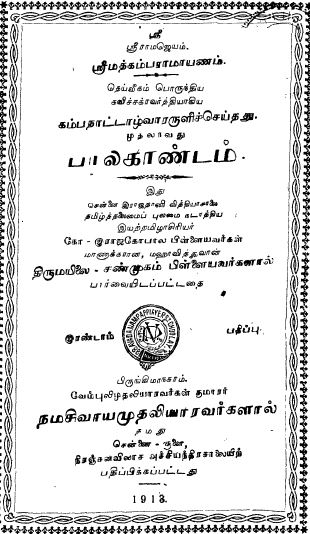 ஸ்ரீ
ஸ்ரீராமஜெயம்.
ஸ்ரீமத்கம்பராமாயணம்.
தெய்வீகம் பொருந்திய
கவிச்சக்ரவர்த்தியாகிய
கம்பநாட்டாழ்வாரருளிச்செய்தது.
முதலாவது
பாலகாண்டம்.
இது
சென்னை இராஜதானி வித்தியாசாலை
தமிழ்த்தலைமைப் புலமை நடாத்திய
இயற்றமிழாசிரியர்
கோ - இராஜகோபால பிள்ளையவர்கள்
மாணாக்கரான, மஹாவித்துவான்
திருமயிலை - சண்முகம் பிள்ளையவர்களால்
பார்வையிடப்பட்டதை
இரண்டாம் பதிப்பு.
பிருங்கிமாநகரம்.
வேம்புலிமுதலியாரவர்கள் குமாரர்
நமசிவாயமுதலியாரவர்களால்
தமது
சென்னை - சூளை,
நிரஞ்சனவிலாச அச்சியந்திரசாலையிற்
பதிப்பிக்கப்பட்டது
1913.